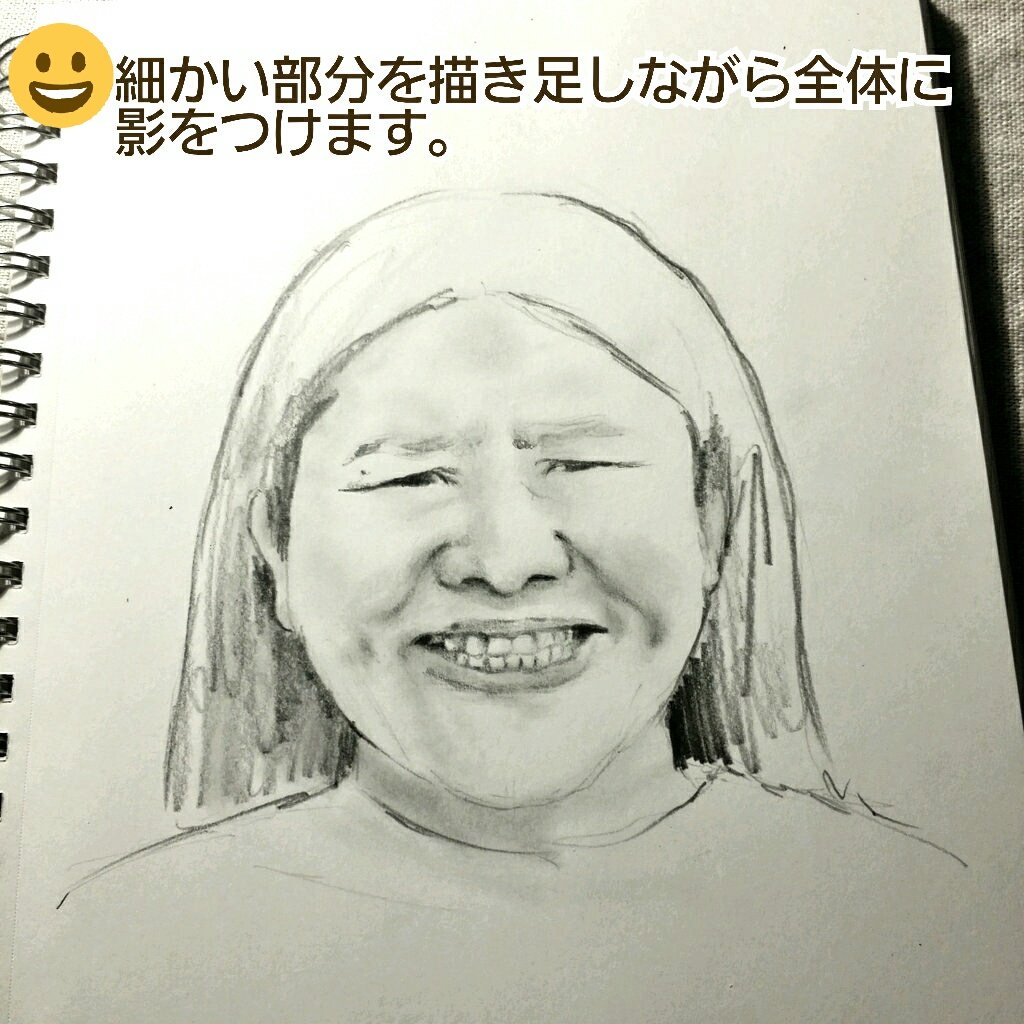 細かい部分を描き足しながら全体に
影をつけます。